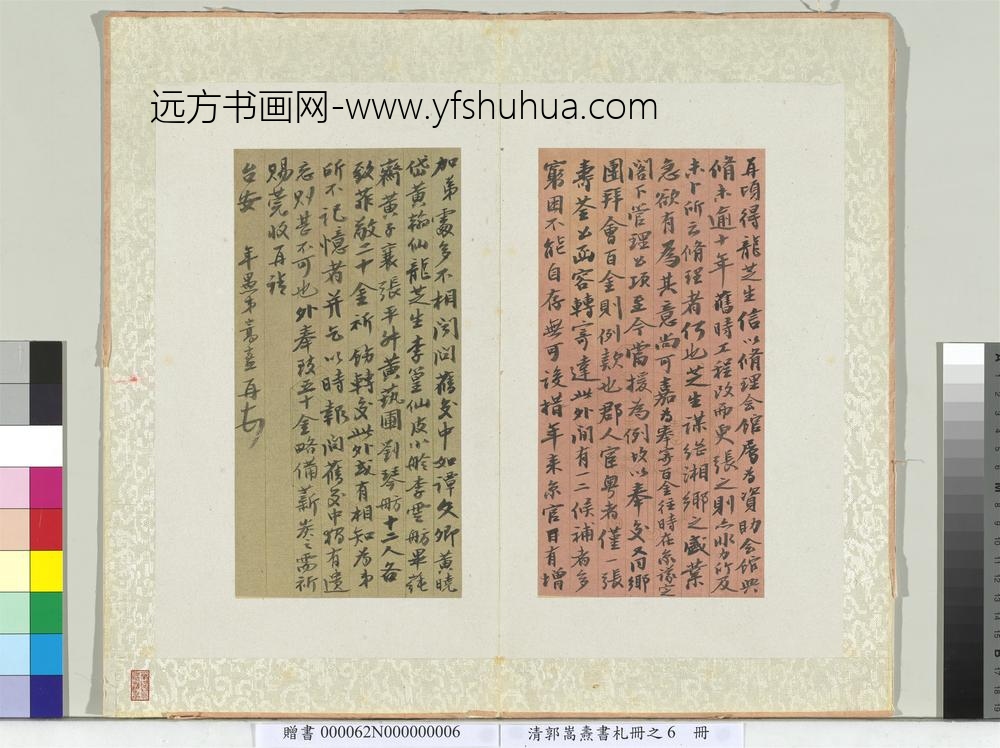 远方书画网-www.yfshuhua.com
再頃得龍芝生信以脩理会館屬為資助会館興
脩未逾十年舊時工程改而更張之則亦非力所及
未卜所云脩理者何也芝生謀繼湘鄉之盛業
急欲有為其意尚可嘉為奉寄百金往時在京議定
閣下管理公項至今當援為例故以奉交又同鄉
團拜會百金則例款也郡人宦粵者僅一張
壽荃公函容轉寄達此外间有二候補者多
窮困不能自存無可設措年来京官日有增
加弟處多不相闻问舊交中如譚文卿黃曉
岱黃翰仙龍芝生李篁仙皮小舲李雲舫畢純
齋黃子襄張平舛黃藝圃劉琴舫十二人各
致菲敬二十金祈飭轉交此外或有相知為弟
所不记憶者并乞以時報闻舊交中猶有遺
忘則甚不可也外奉致五十金略備薪炭之需祈
賜莞收再請
台安 年愚弟嵩燾再頓
贈書 000062N000000006
清郭嵩燾書札冊之 6 冊